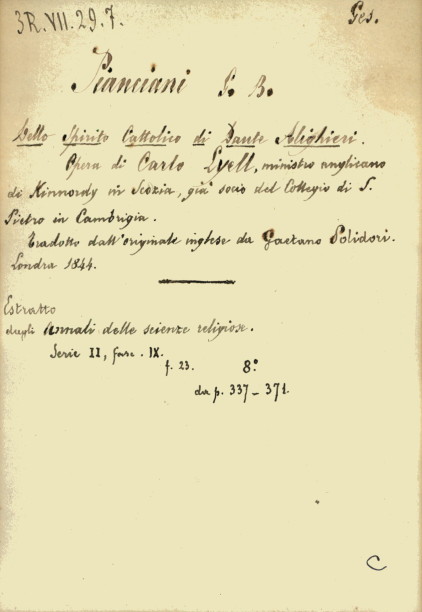 3R.VII.29.7.
Ges.
Pianciani G. B.
Dello Spirito Cattolico di Dante Alighieri.
Opera di Carlo Lyell, ministro anglicano
di Kinnordy in Scozia, già socio del Collegio di S.
Pietro in Cambrigia.
Tradotto dall'originale inglese da Gaetano Polidori.
Londra 1844.
Estratto
dagli Annali delle scienze religiose.
Serie II, fasc. IX.
f. 23. 8.°
da p. 337-371.
C